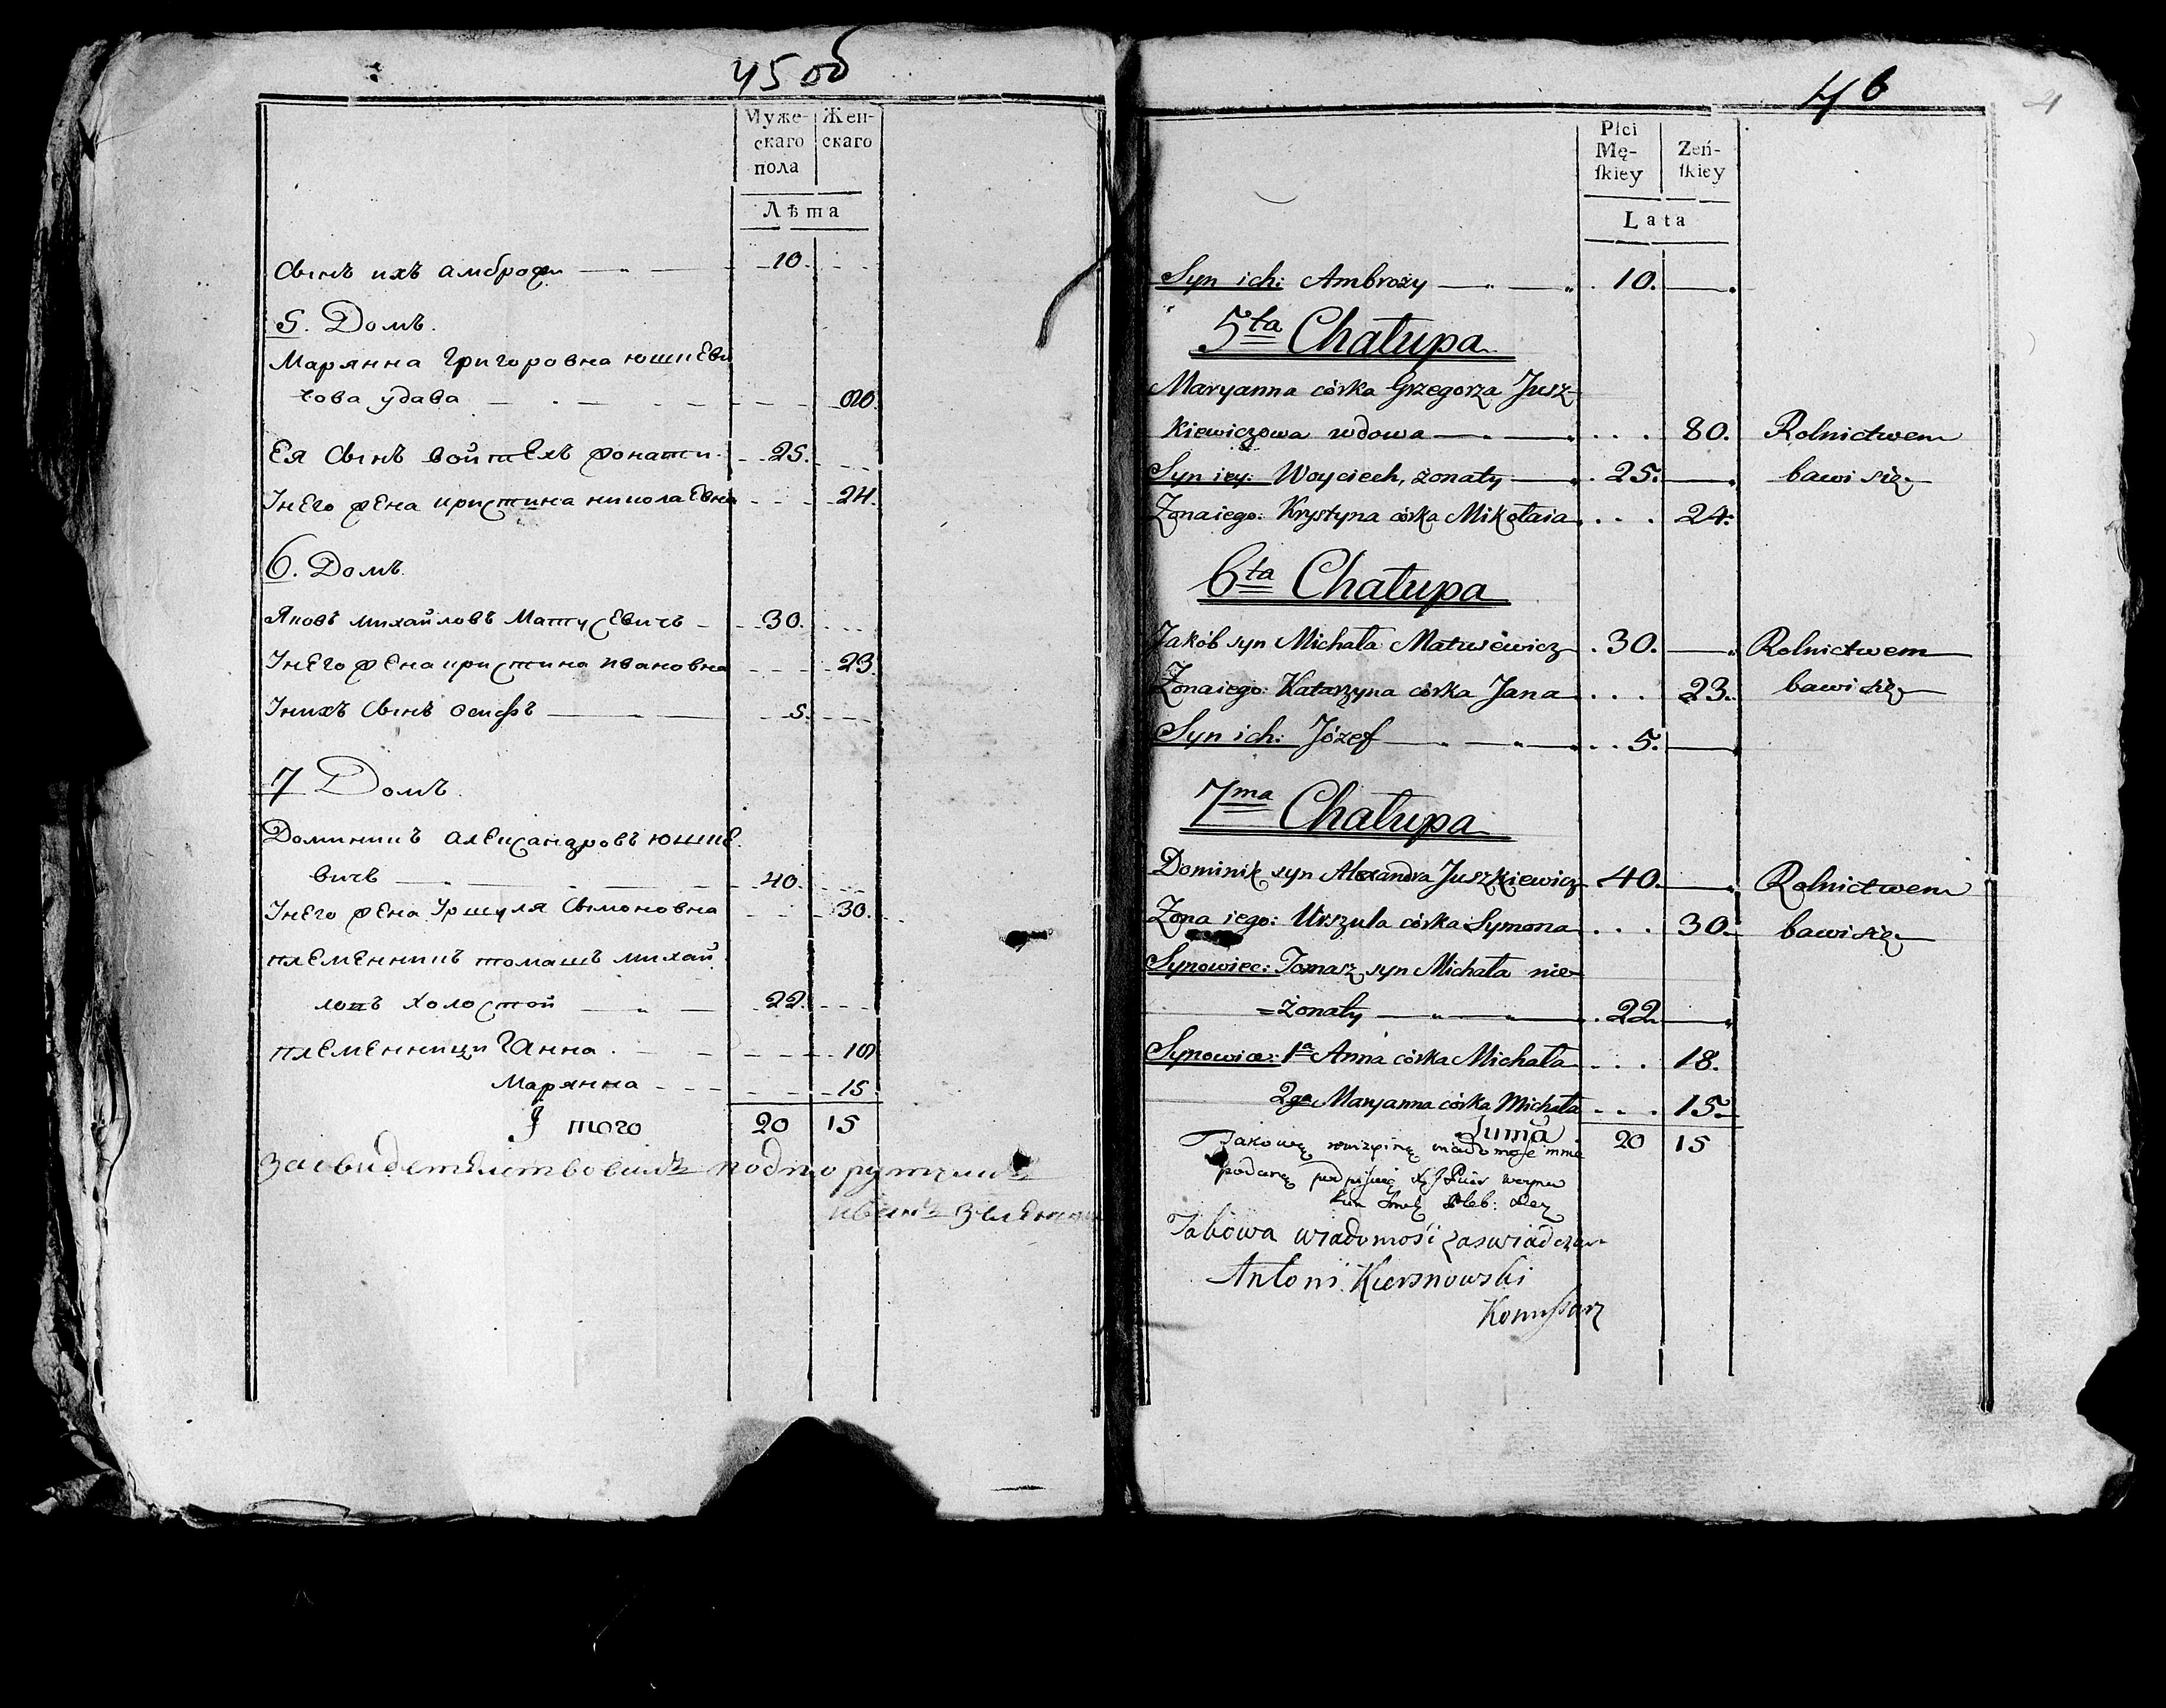 45 об
Муже-
скаго
пола
Жен-
скаго
Лѣта
Сынъ ихъ амброжи 10.
5. Домъ.
Марянна Григоровна юшкеви
чова удава 80.
Ея Сынъ войтехъ жонати. 25.
Інего жена кристина николаевна 24.
6. Домъ.
Яковъ михайловъ Матусевичъ 30.
Інего жена кристина ивановна 23.
Інихъ Сынъ осифъ 5.
7 Домъ.
Доминикъ александровъ юшке
вичъ 40.
Інего жена Уршуля Сымоновна 30.
племенникъ томашъ михай
ловъ холостой 22.
племенници Ганна. 18
Марянна 15
І того 20 15
Засвидетелствовалъ подпорутчикъ
иванъ
46
Płci
Mę-
ſkiey
Zeń-
ſkiey
Lata
Syn ich: Ambroży 10.
5ta Chałupa
Maryanna córka Grzegorza Jusz-
kiewiczowa wdowa 80. Rolnictwem
Syn iey: Woyciech, żonaty 25. bawi się
Żona iego: Krystyna córka Mikołaia 24.
6ta Chałupa
Jakób syn Michała Matusewicz 30. Rolnictwem
Żona iego: Katarzyna córka Jana 23. bawi się
Syn ich: Józef 5.
7ma Chałupa
Dominik syn Alexandra Juszkiewicz 40. Rolnictwem
Żona iego: Urszula córka Symona 30. bawi się
Synowiec: Tomasz syn Michała nie-
=żonaty 22
Synowice: 1a Anna córka Michała 18.
2ga Maryanna córka Michała 15.
Suma 20 15
Jakową mnie
podaną podpisuię
Pleb:
Takowa wiadomość zaswiadczam
Antoni Kiersnowski
Komissarz